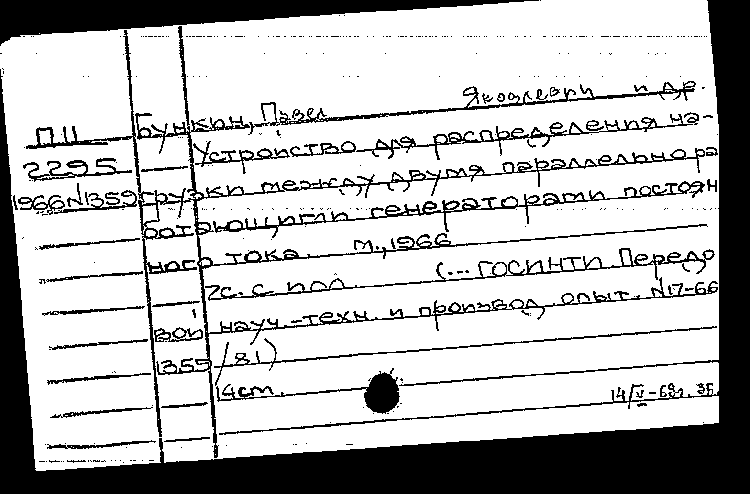 Бункин, Павел Яковлевич и др.
П11
2295
1966 N1359
Устройство для распределения на-
грузки между двумя параллельно ра
ботающими генераторами постоян
ного тока. М., 1966
7с. с илл. (... ГОСИНТИ. Передо
вой науч.-техн. и производ. опыт. N17-66
1359/81)
14 cm.
14/V-69г. ЭБ.